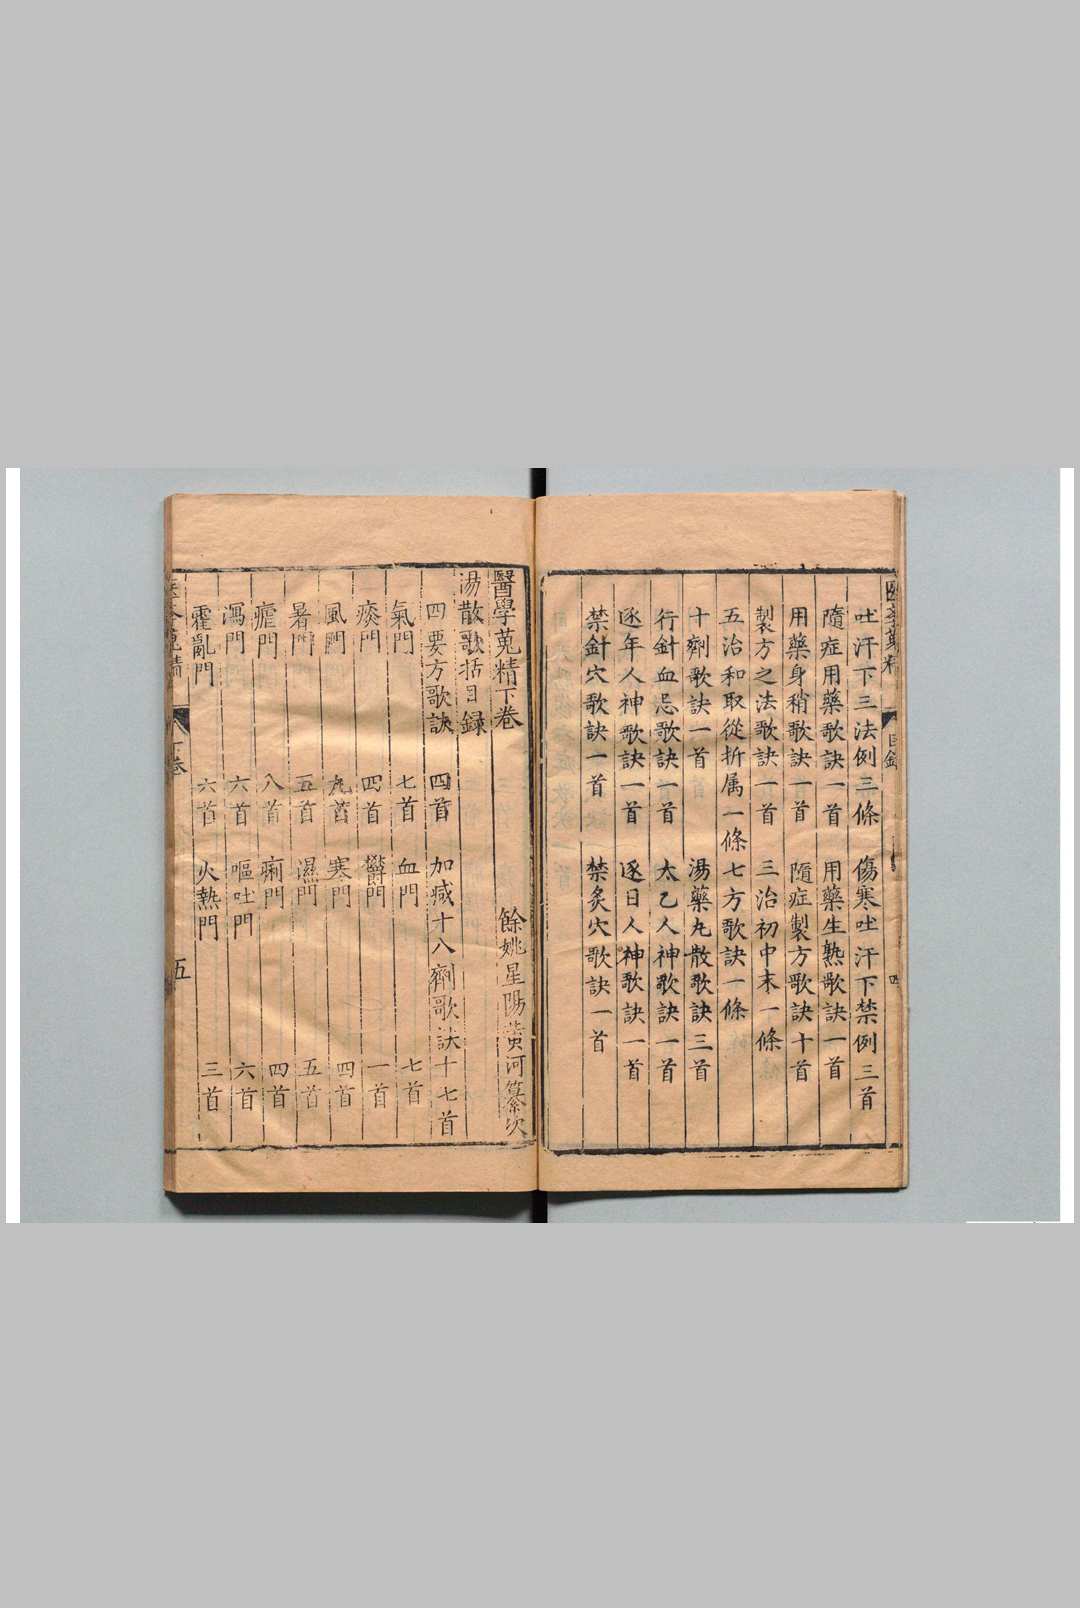 吐汗下三法例三條　傷寒吐汗下禁例三首
隨症用藥歌訣一首　用藥生熟歌訣一首
用藥身稍歌訣一首　隨症製方歌訣十首
製方之法歌訣一首　三治初中末一條
五治和取從折属一條　七方歌訣一條
十劑歌訣一首　湯藥丸散歌訣三首
行針血忌歌訣一首　太乙人神歌訣一首
逐年人神歌訣一首　逐日人神歌訣一首
禁針穴歌訣一首　禁炙穴歌訣一首
醫學蒐精下卷　餘姚星陽黄河纂次
湯散歌括目録
四要方歌訣　四首　加減十八劑歌訣十七首
氣門　七首　血門　七首
痰門　四首　欝門　一首
風門　九首　寒門　四首
暑門　五首　濕門　五首
瘧門　八首　痢門　四首
瀉門　六首　嘔吐門　六首
霍亂門　六首　火熱門　三首
五